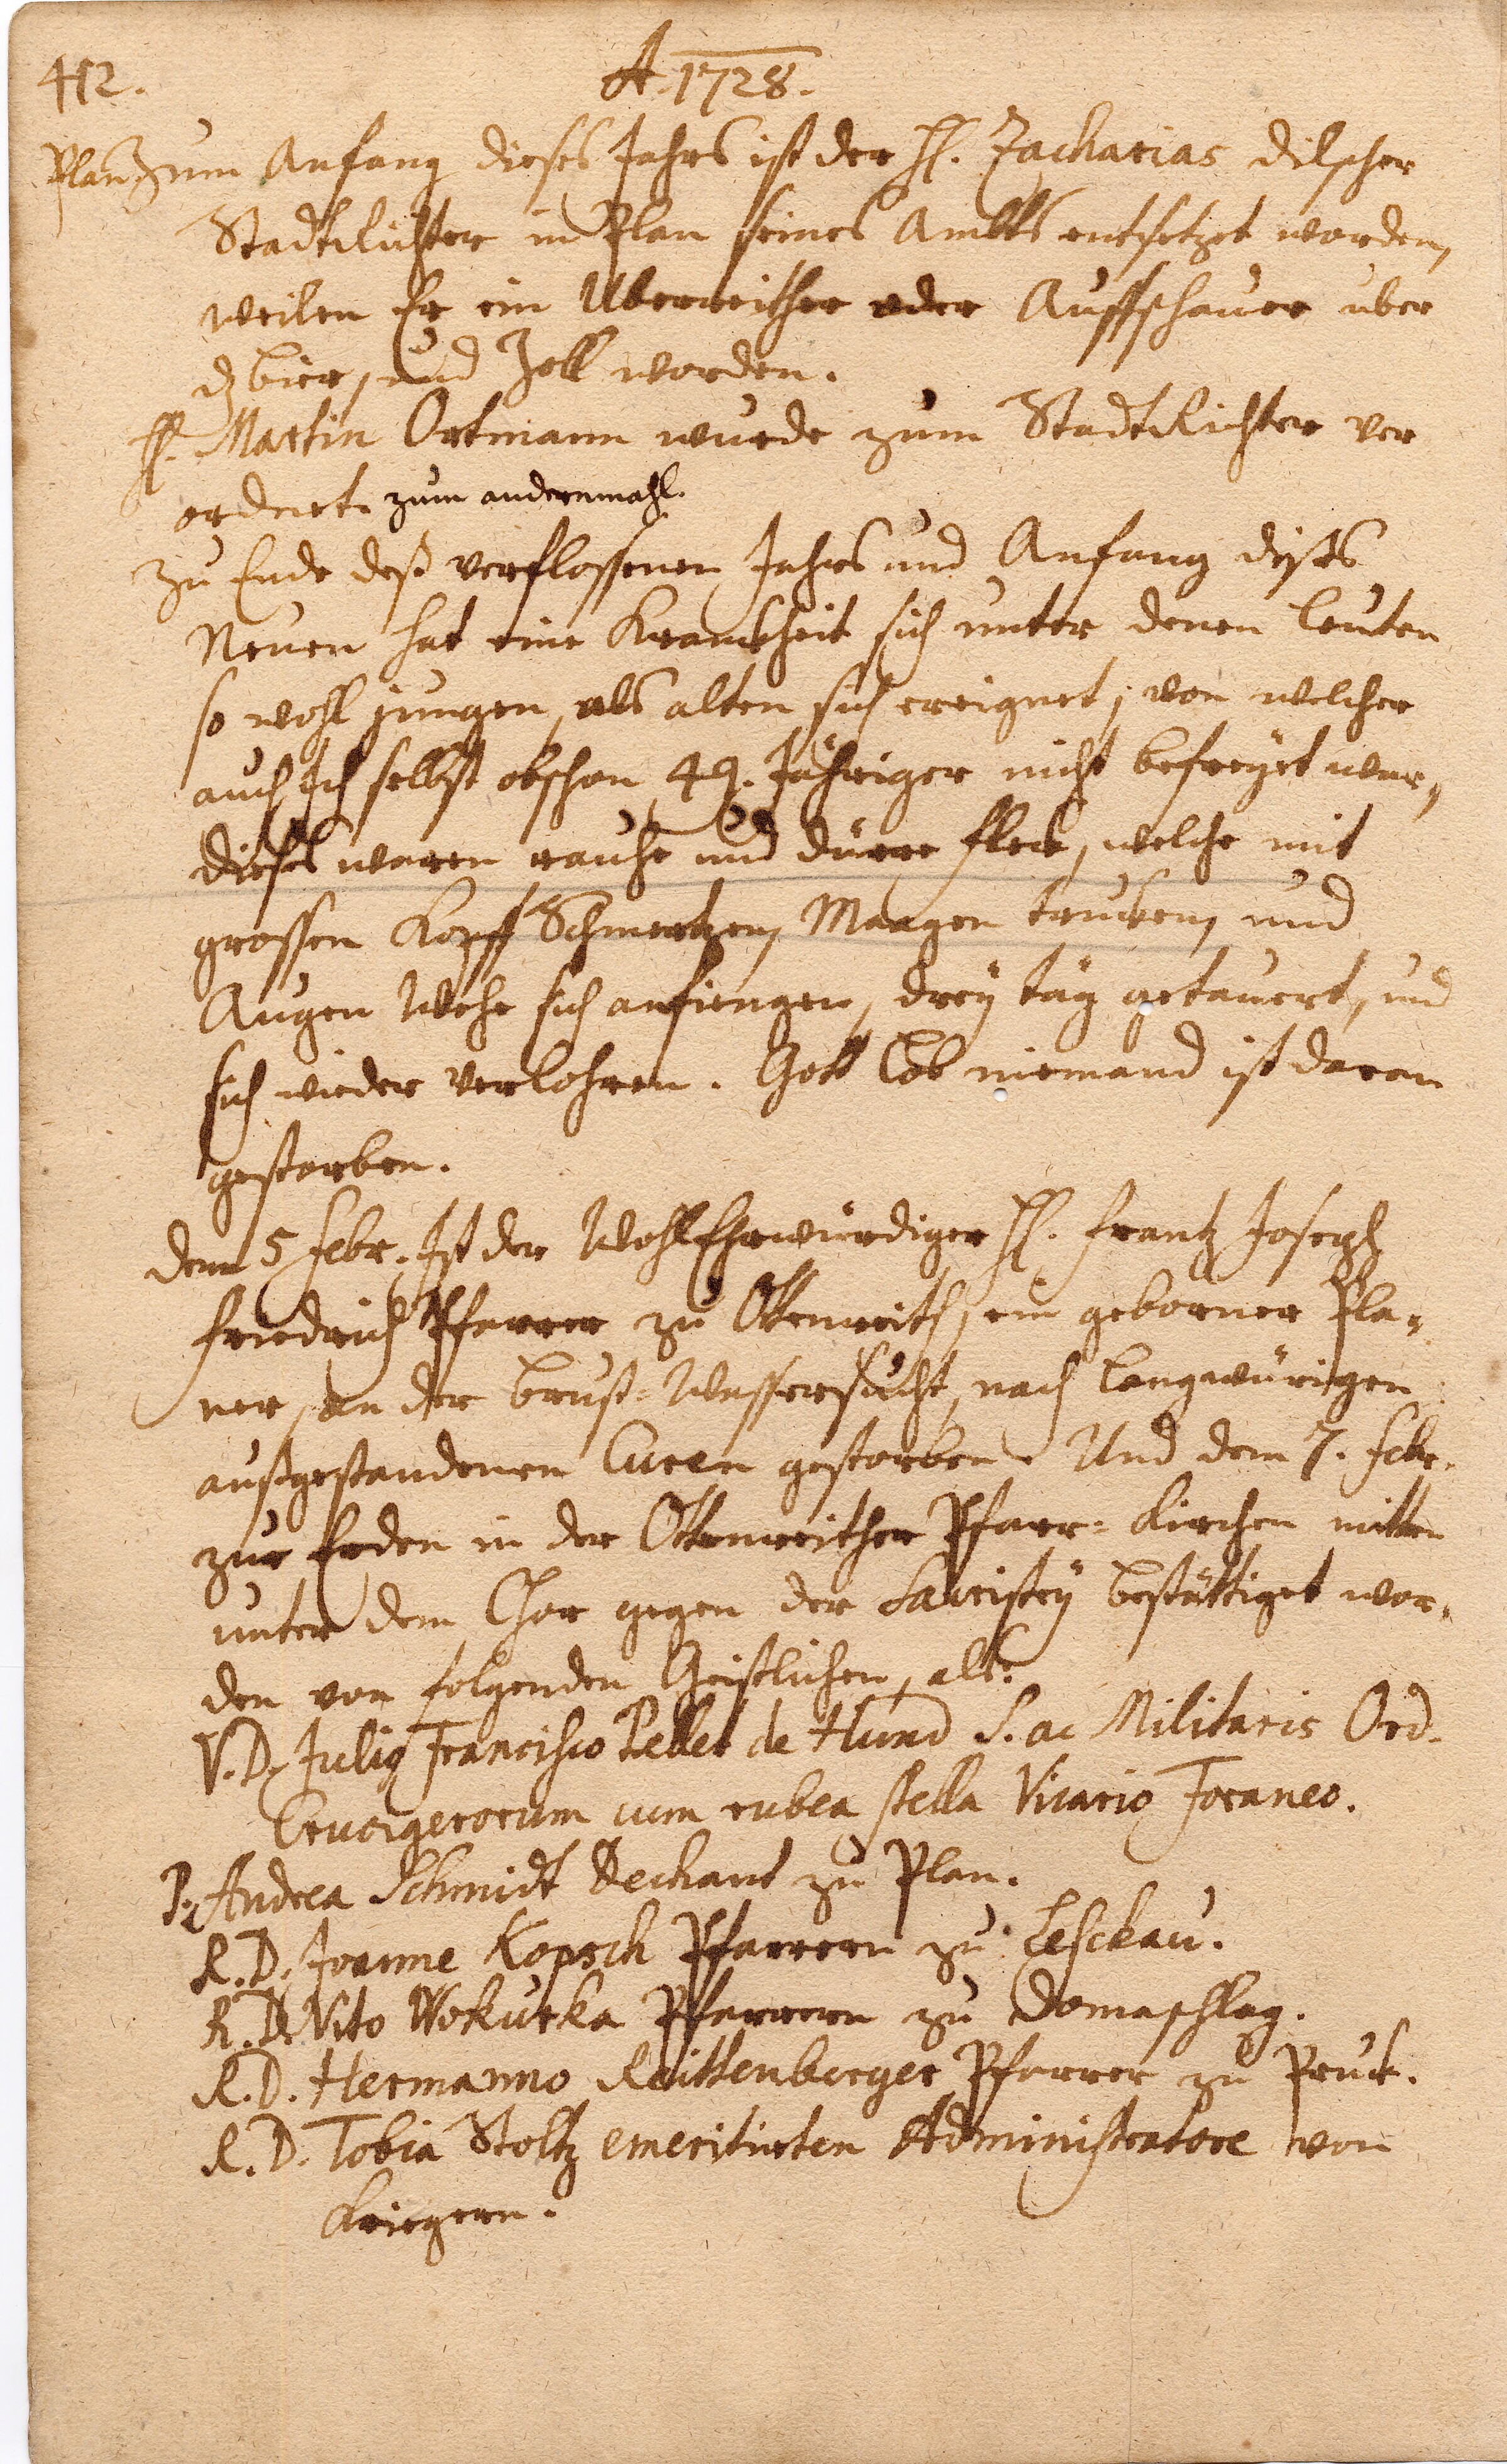 412.
A. 1728.
Plan Zum Anfang dieses Jahrs ist der H. Zacharias Dilscher
StadtRichter in Plan seines Ambts entsetzet worden,
weilen Er ein Uberreither oder Auffschauer uber
dz bier, und Zoll worden.
H. Martin Ortmann wurde zum StadtRichter ver
ordnet. zum andernmahl.
Zu Ende deß verflossenen Jahrs und Anfang dises
Neuen hat eine Kranckheit sich unter denen leuten
so wohl jungen, als alten sich ereignet, von welcher
auch Ich selbst obschon 49. Jähriger nicht befreyet war,
dieses waren rauhe und dürre fleck, welche mit
grossen Kopff Schmertzen, Maagen trucken, und
Augen Wehe sich anfiengen, drey täg getauert, und
sich wieder verlohren. Gott lob niemand ist daran
gestorben.
Denn 5 Febr. Ist der WohlEhrwürdiger H. Frantz Joseph
Friedrich Pfarrer zu Ottenreith, ein geborner Pla-
ner, an der brust-Wassersucht, nach langwürigen
außgestandenen Curen gestorben. Und dem 7. Febr.
zur Erden in der Ottenreither Pfarr-Kirchen mitten
unter dem Chor gegen der Sacristey bestättiget wor-
den von folgenden Geistlichen, als:
V. D. Julio Francisco Peller de Hund S. ac Militaris Ord.
Crucigerorum cum rubea stella Vicario Foraneo.
P. Andrea Schmidt Dechant zu Plan.
R. D. Joanne Kopsch Pfarrern zu Lesckau.
R. D. Vito Wokurka Pfarrern zu Domaschlag.
R. D. Hermanno Reittenberger Pfarrer zu Pruck.
R. D. Tobia Stoltz emeritirten Administratore von
Kriegern.